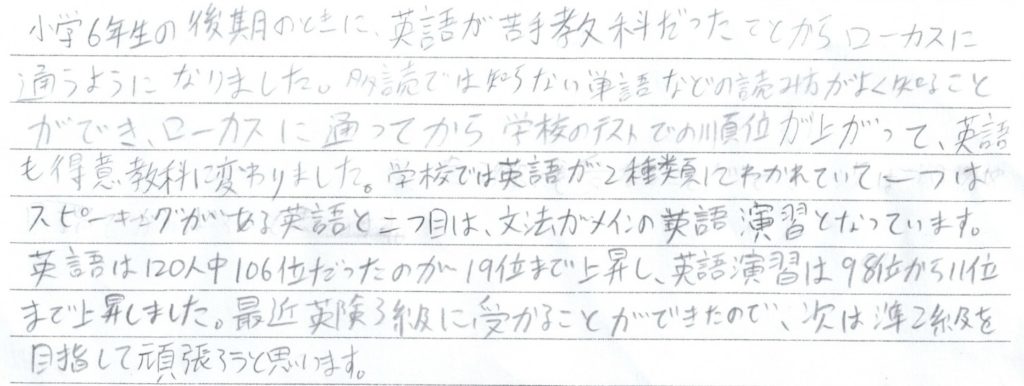 小学6年生の後期のときに、英語が苦手教科だったことからローカスに
通うようになりました。多読では知らない単語などの読み方がよく知ること
ができ、ローカスに通ってから学校のテストでの順位が上がって、英語
も得意教科に変わりました。学校では英語が2種類にでわかれていて一つは
スピーキングがある英語と二つ目は、文法がメインの英語演習となっています。
英語は120人中106位だったのが19位まで上昇し、英語演習は98位から11位
まで上昇しました。最近英険3級に受かることができたので、次は準2級を
目指して頑張ろうと思います。